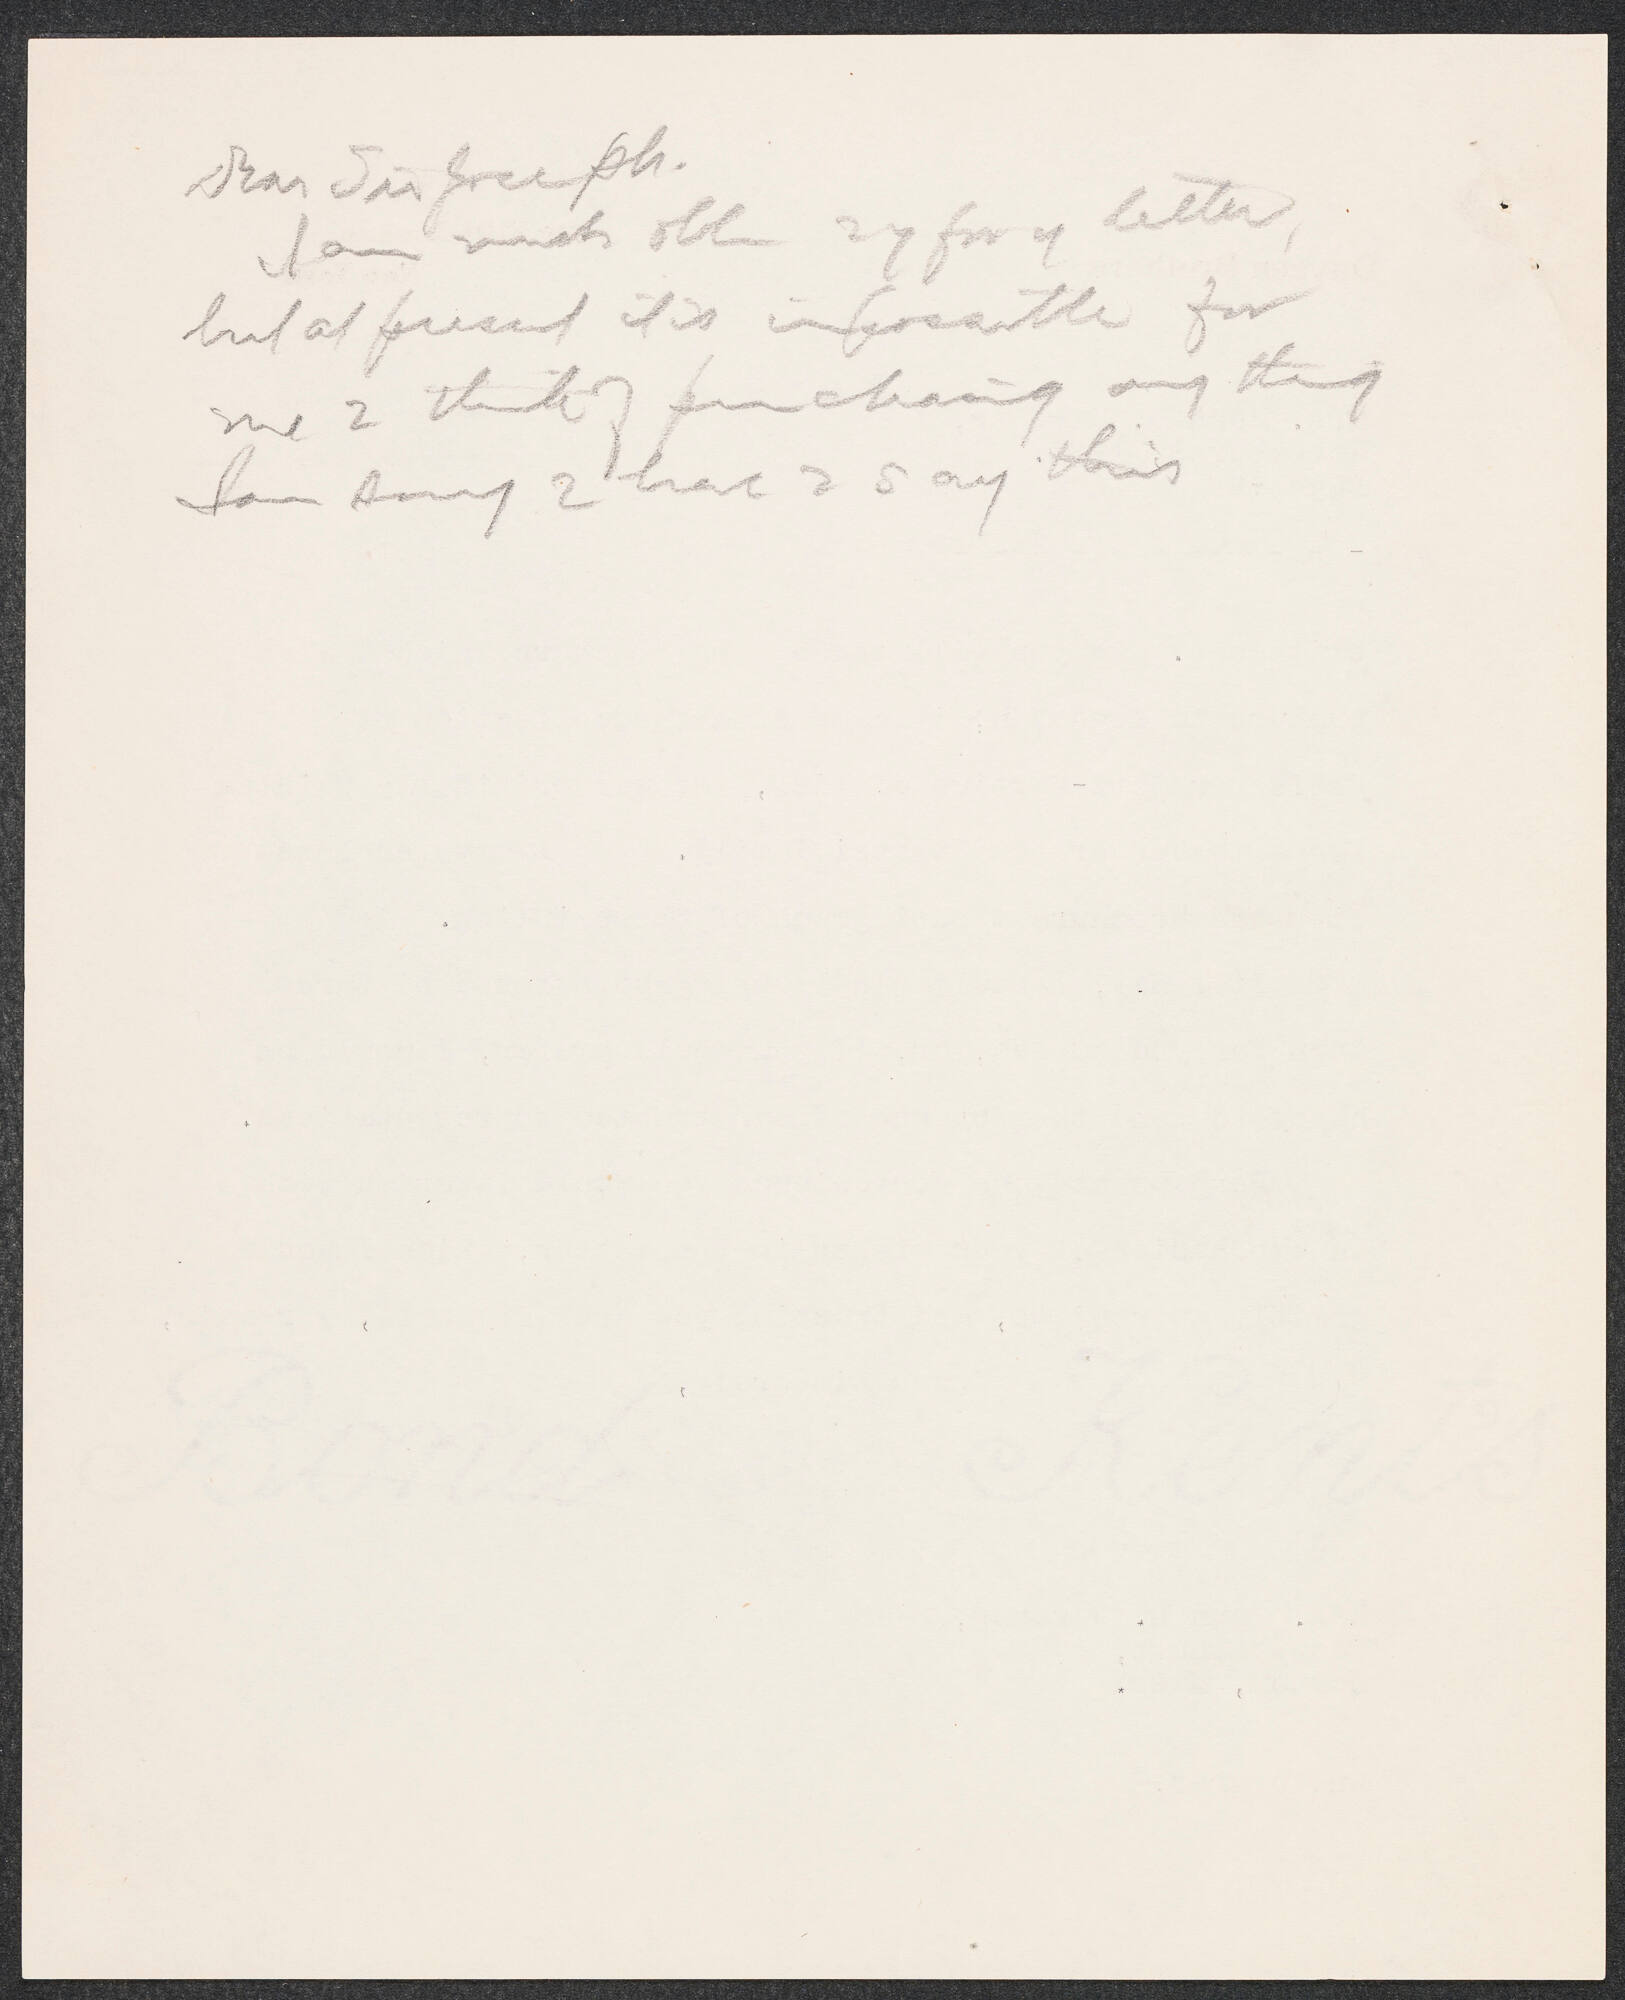 Dear Sir Joseph.
I am much obld 2 y for y letter,
but at present it is impossible for
me 2 think of purchasing any thing
I am sorry 2 have 2 say this